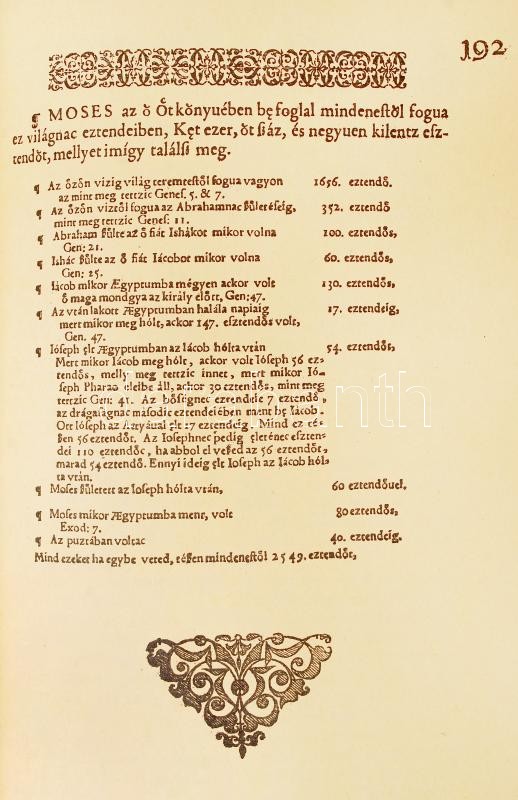 192
¶ MOSES az ő Öt könyuében bęfoglal mindenestől fogua
ez világnac eztendeiben, Kęt ezer, öt száz, és negyuen kilentz esz-
tendőt, mellyet imígy találsz meg.
¶ Az őzőn vizig világ teremtestől fogua vagyon 1656. eztendő.
az mint meg tettzic Genes. 5. & 7.
¶ Az őzőn víztől fogua az Abrahamnac születéseig, 352. eztendő
mint meg tettzic Genes: 11.
¶ Abraham szülte az ő fiát Ishákot mikor volna 100. eztendős,
Gen: 21.
¶ Ishác szülte az ő fiát Iácobot mikor volna 60. eztendős,
Gen: 25.
¶ Iácob mikor Ægyptumba mégyen ackor volt 130. eztendős,
ő maga mondgya az király előtt, Gen: 47.
¶ Az vtán lakott Ægyptumban halála napiaig 17. eztendeig,
mert mikor meg hólt, ackor 147. esztendős volt,
Gen. 47.
¶ Ióseph ęlt Ægyptumban az Iácob hólta vtán 54. eztendőt,
Mert mikor Iácob meg hólt, ackor volt Ióseph 56 ez-
tendős, melly meg tettzic innet, mert mikor Ió-
seph Pharao eleibe áll, ackor 30 eztendős, mint meg
tettzic Gen: 41. Az bőségnec eztendeie 7 eztendő,
az drágasagnac második eztendeiében ment bę Iácob.
Ott Ióseph az Attyáual ęlt 17 eztendeig. Mind ez tę-
szen 56 eztendőt. Az Iosephnec pedig ęleténec eszten-
dei 110 eztendőc, ha abbol el veszed az 56 eztendőt,
marad 54 eztendő. Ennyi ideig ęlt Ioseph az Iácob hól-
ta vtán.
¶ Moses születet az Ioseph hólta vtán, 60 eztendőuel.
¶ Moses mikor Ægyptumba ment, volt 80 eztendős,
Exod: 7.
¶ Az puztában voltac 40. eztendeig.
Mind ezeket ha egybe veted, tészen mindenestől 2549. eztendőt,